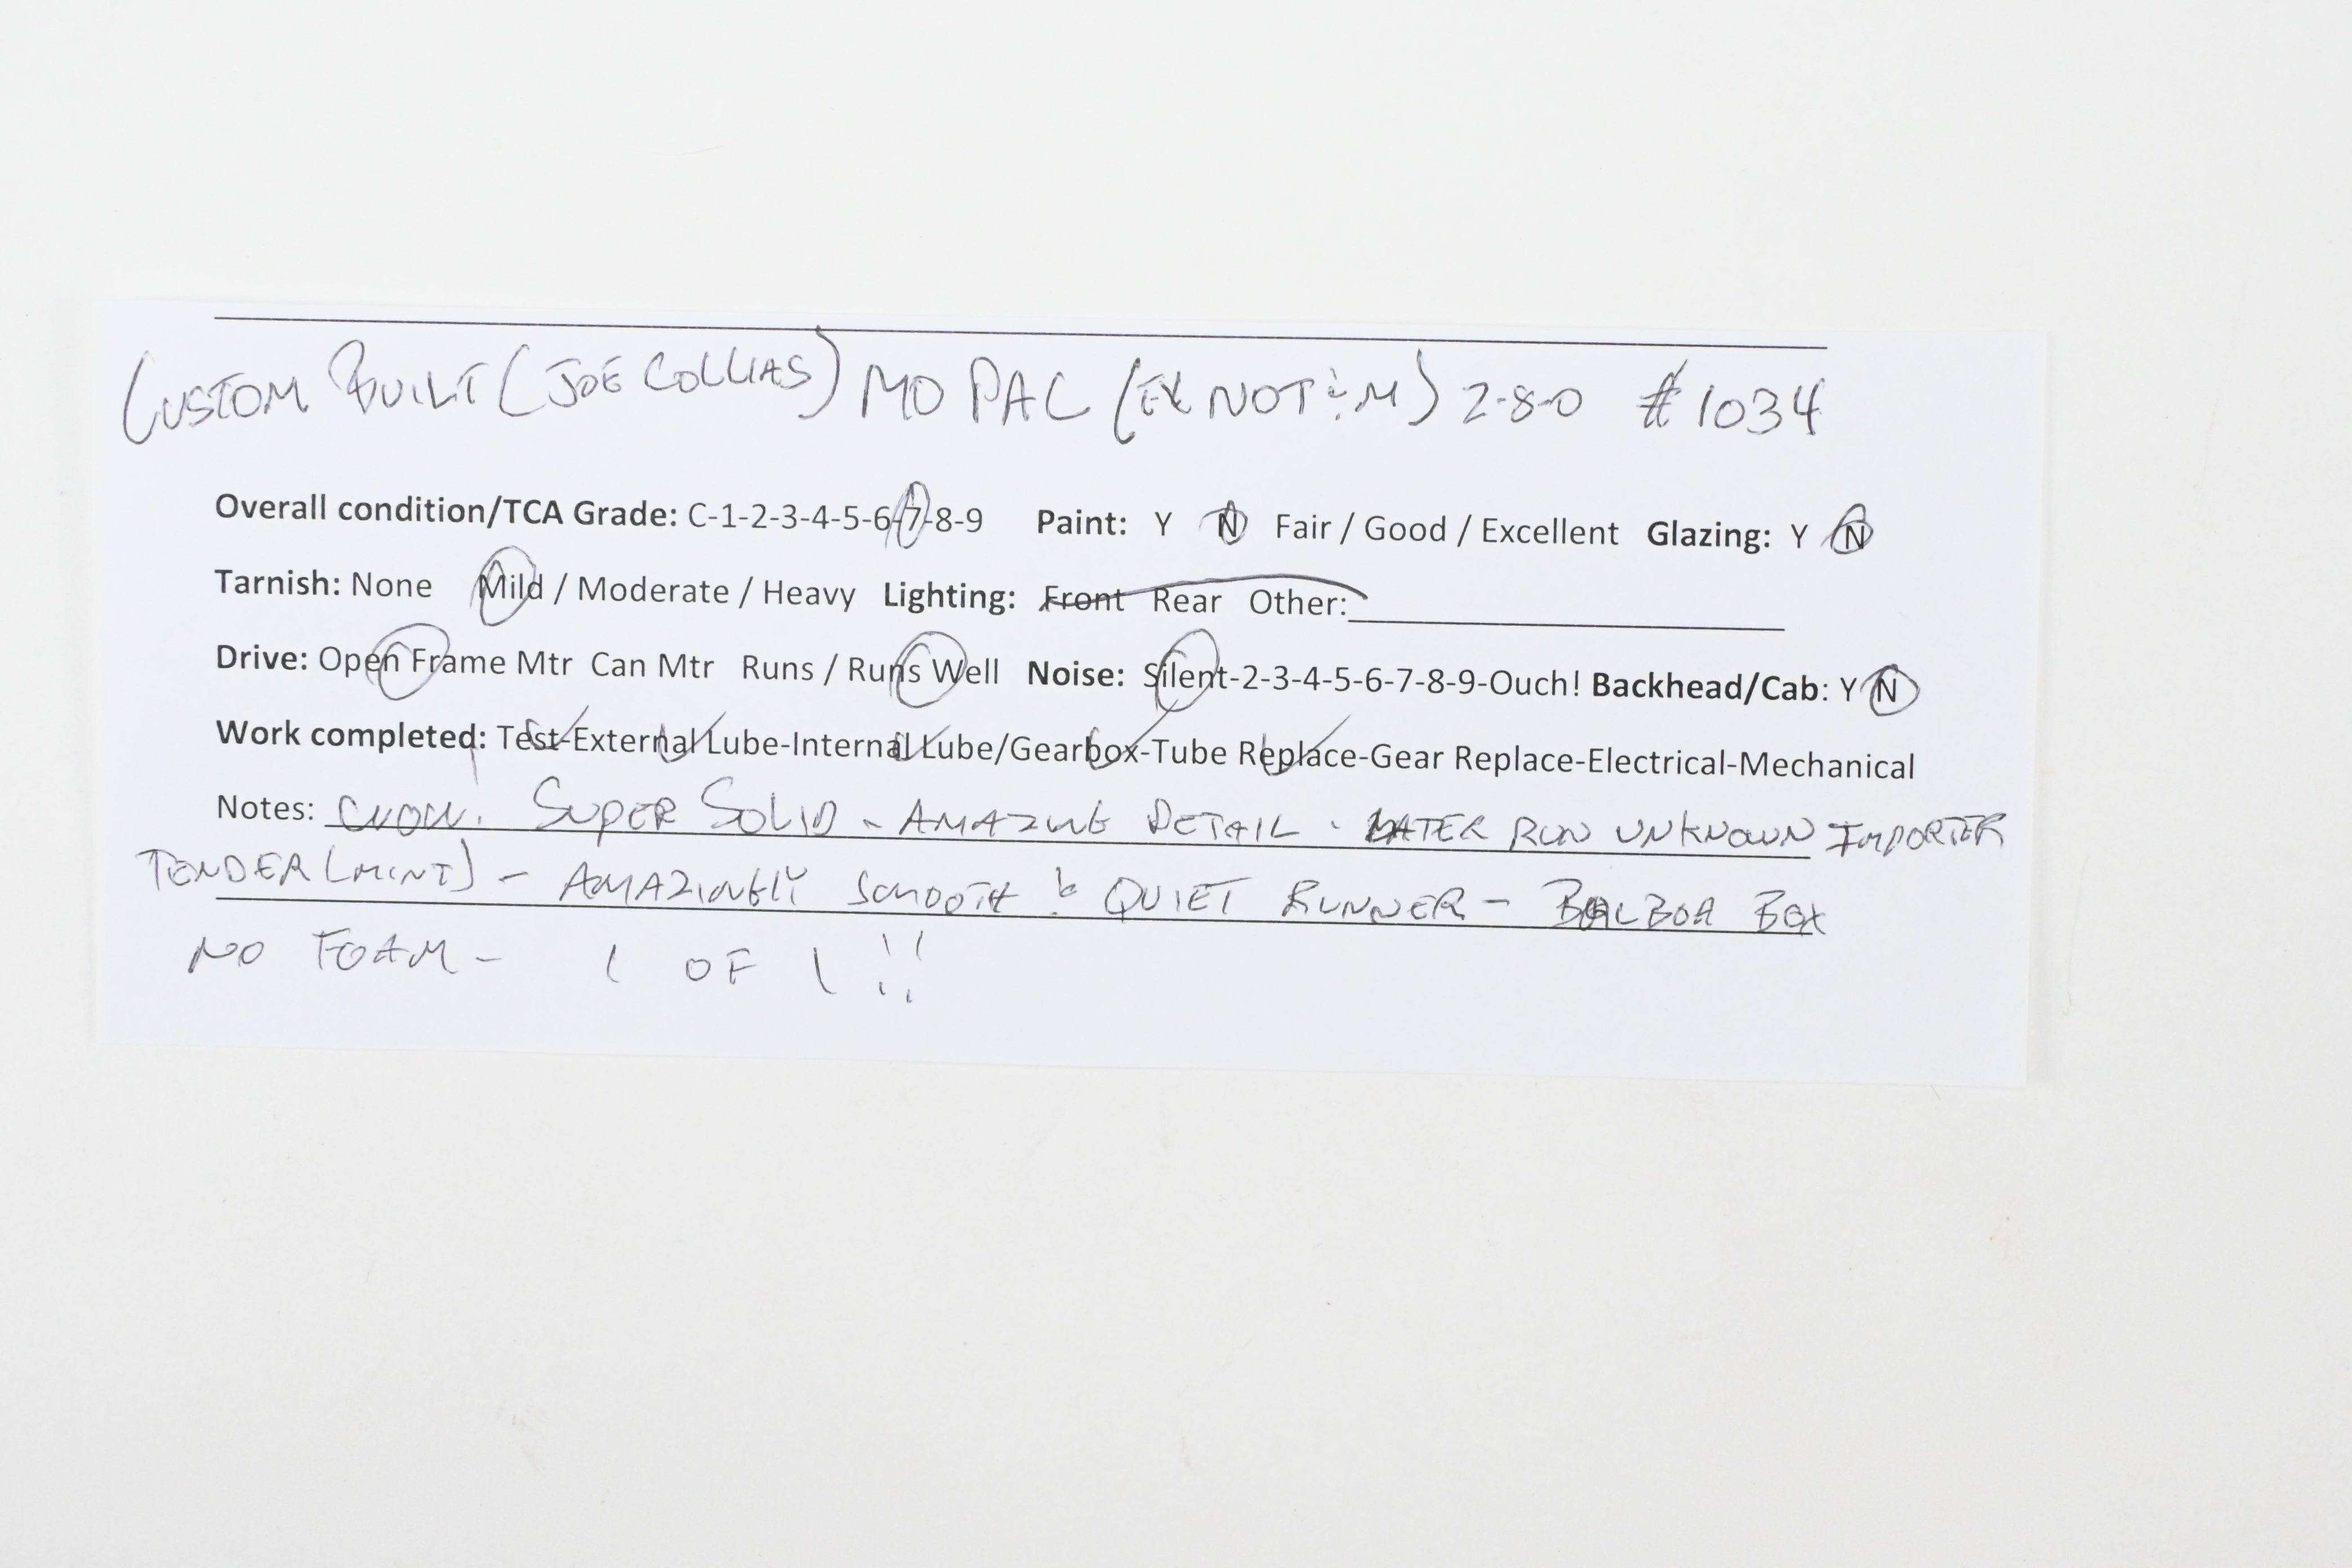 CUSTOM BUILT (JOE COLLIAS) MO PAC (EX NOT&M) 2-8-0 #1034
Overall condition/TCA Grade: C-1-2-3-4-5-6-7-8-9 Paint: Y N Fair / Good / Excellent Glazing: Y N
Tarnish: None Mild / Moderate / Heavy Lighting: Front Rear Other:
Drive: Open Frame Mtr Can Mtr Runs / Runs Well Noise: Silent-2-3-4-5-6-7-8-9-Ouch! Backhead/Cab: Y N
Work completed: Test-External Lube-Internal Lube/Gearbox-Tube Replace-Gear Replace-Electrical-Mechanical
Notes: WOW. SUPER SOLID - AMAZING DETAIL. LATER RUN UNKNOWN IMPORTER
TENDER (MINT) - AMAZINGLY SMOOTH & QUIET RUNNER - BALBOA BOX
NO FOAM - 1 OF 1 !!